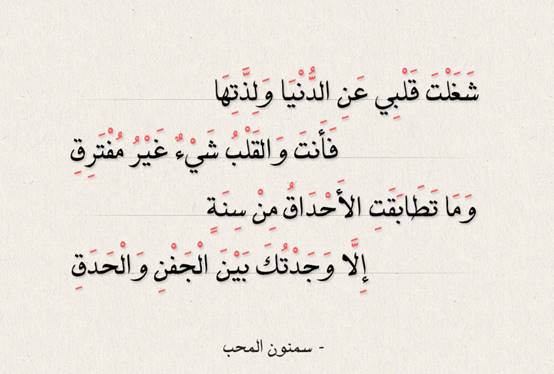 شَغَلْتَ قَلْبِي عَنِ الدُّنْيَا وَلِذَّتِهَا
فَأَنتَ وَالقَلْبُ شَيْءٌ غَيْرُ مُفْتَرِقِ
وَمَا تَطَابَقَتِ الأَحْدَاقُ مِنْ سِنَةٍ
إِلَّا وَجَدْتُكَ بَيْنَ الْجَفْنِ وَالْحَدَقِ
- سمنون المحب